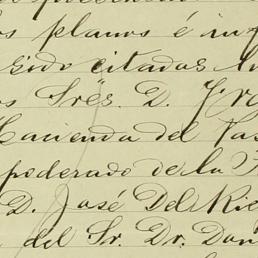 os planos é inf
sido citadas l
os Sres. D. Fr
Hacienda del Pas
poderado de la
D. José Del Rie
del Sr. Dr. Don